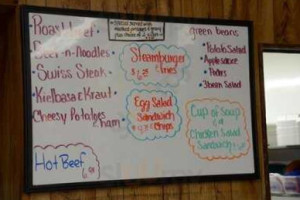 Roast Beef
Beef-n-Noodles
• Swiss Steak •
• Kielbasa & Kraut •
Cheesy Potatoes
& ham
Hot Beef
Steamburger
fries
Egg Salad
Sandwich
Chips
green beans
• Potato Salad
• Applesauce
•
• 3 bean Salad
Cup of Soup
Chicken Salad
Sandwich